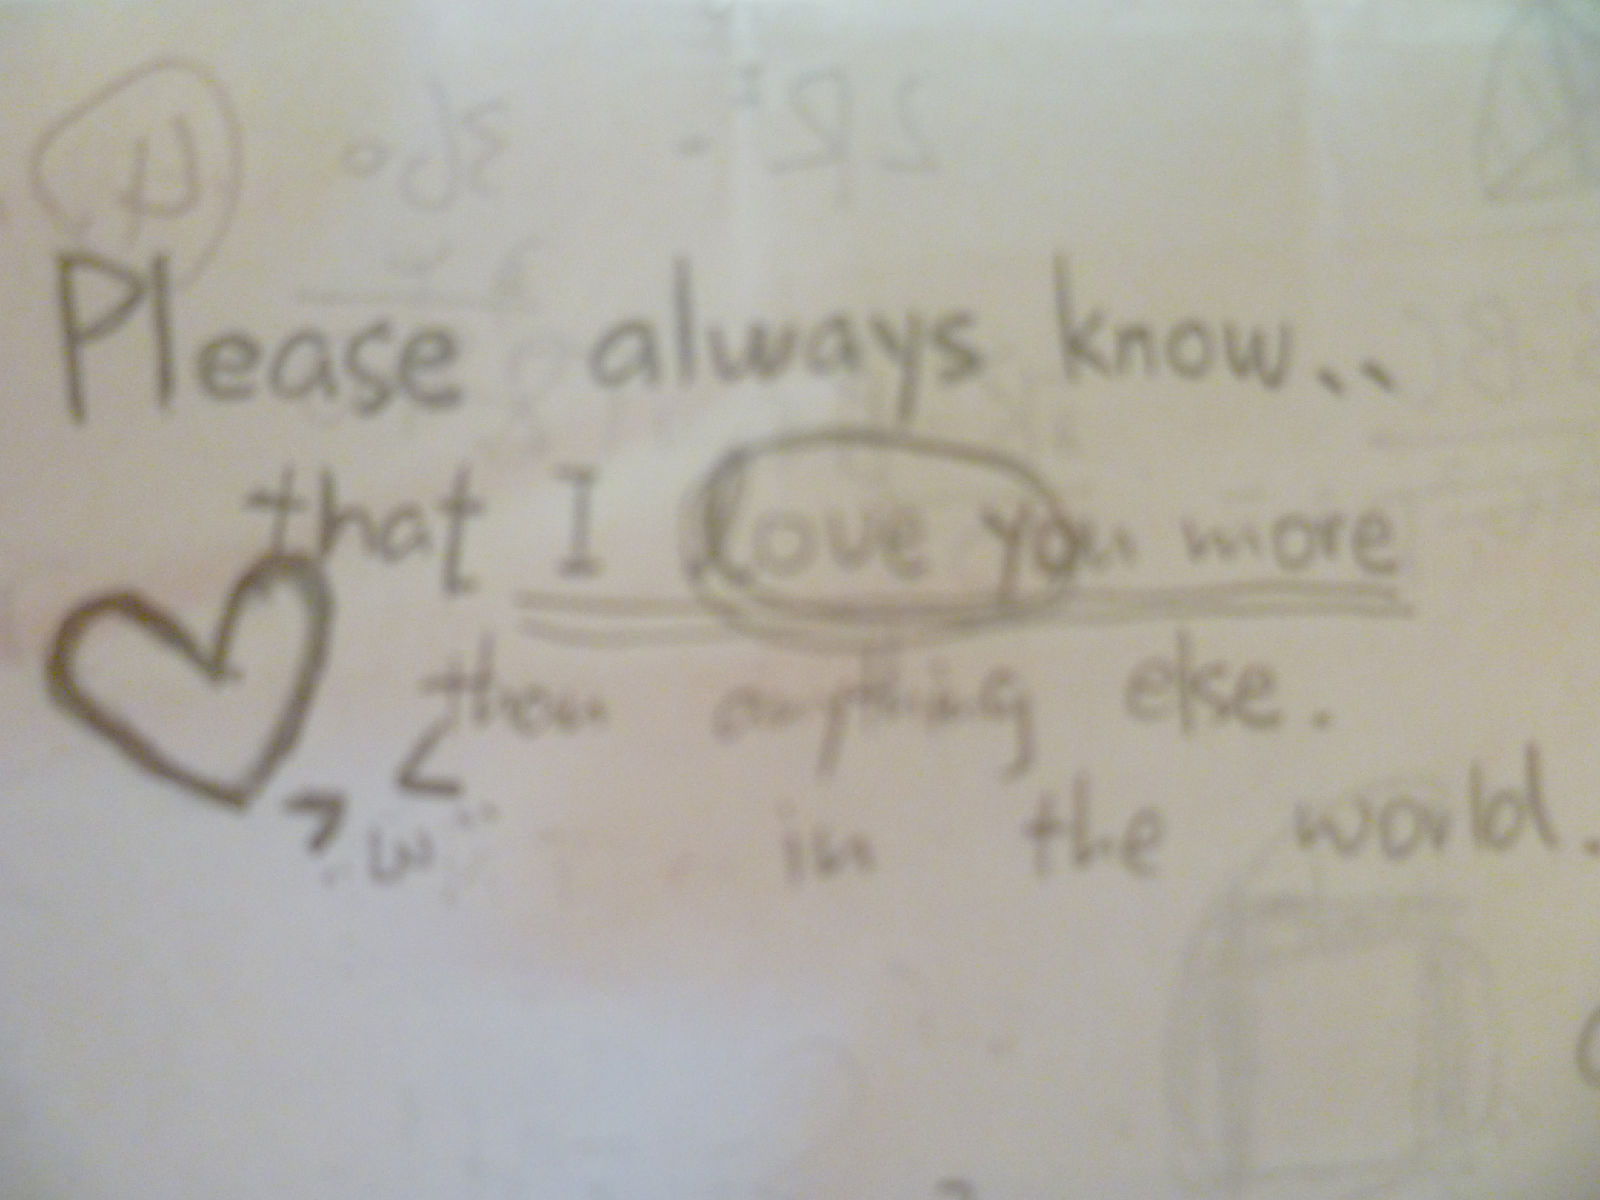 Please always know..
that I love you more
than anything else.
in the world.